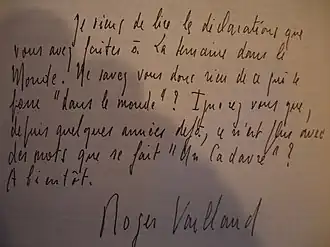 Je viens de lire les déclarations que
vous avez faites à La Semaine dans le
Monde. Ne savez vous donc rien de ce qui se
passe "dans le monde" ? Ignorez vous que,
depuis quelques années déjà, ce n'est plus avec
des mots que se fait "Un Cadavre" ?
A bientôt.
Roger Vailland